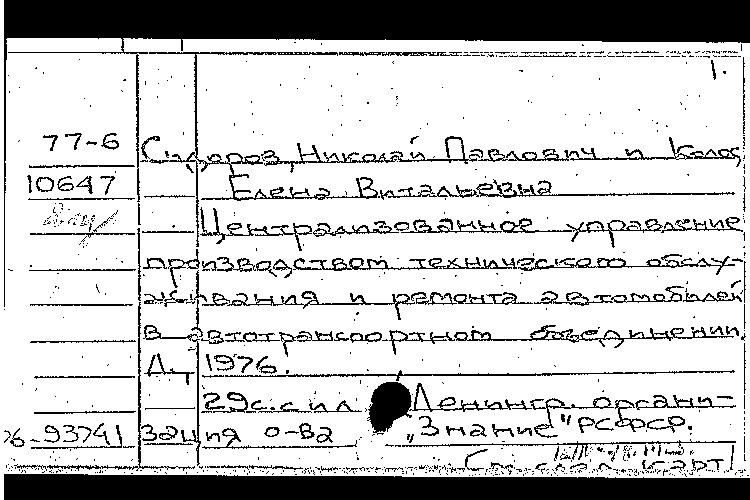 1.
77-6 Сидоров, Николай Павлович и Колос
10647 Елена Витальевна
Централизованное управление
производством технического обслу-
живания и ремонта автомобилей
в автотранспортном объединении.
Л., 1976.
29с. с ил (Ленингр. органи-
76-93741 зация о-ва „Знание" РСФСР.
См. след. карт